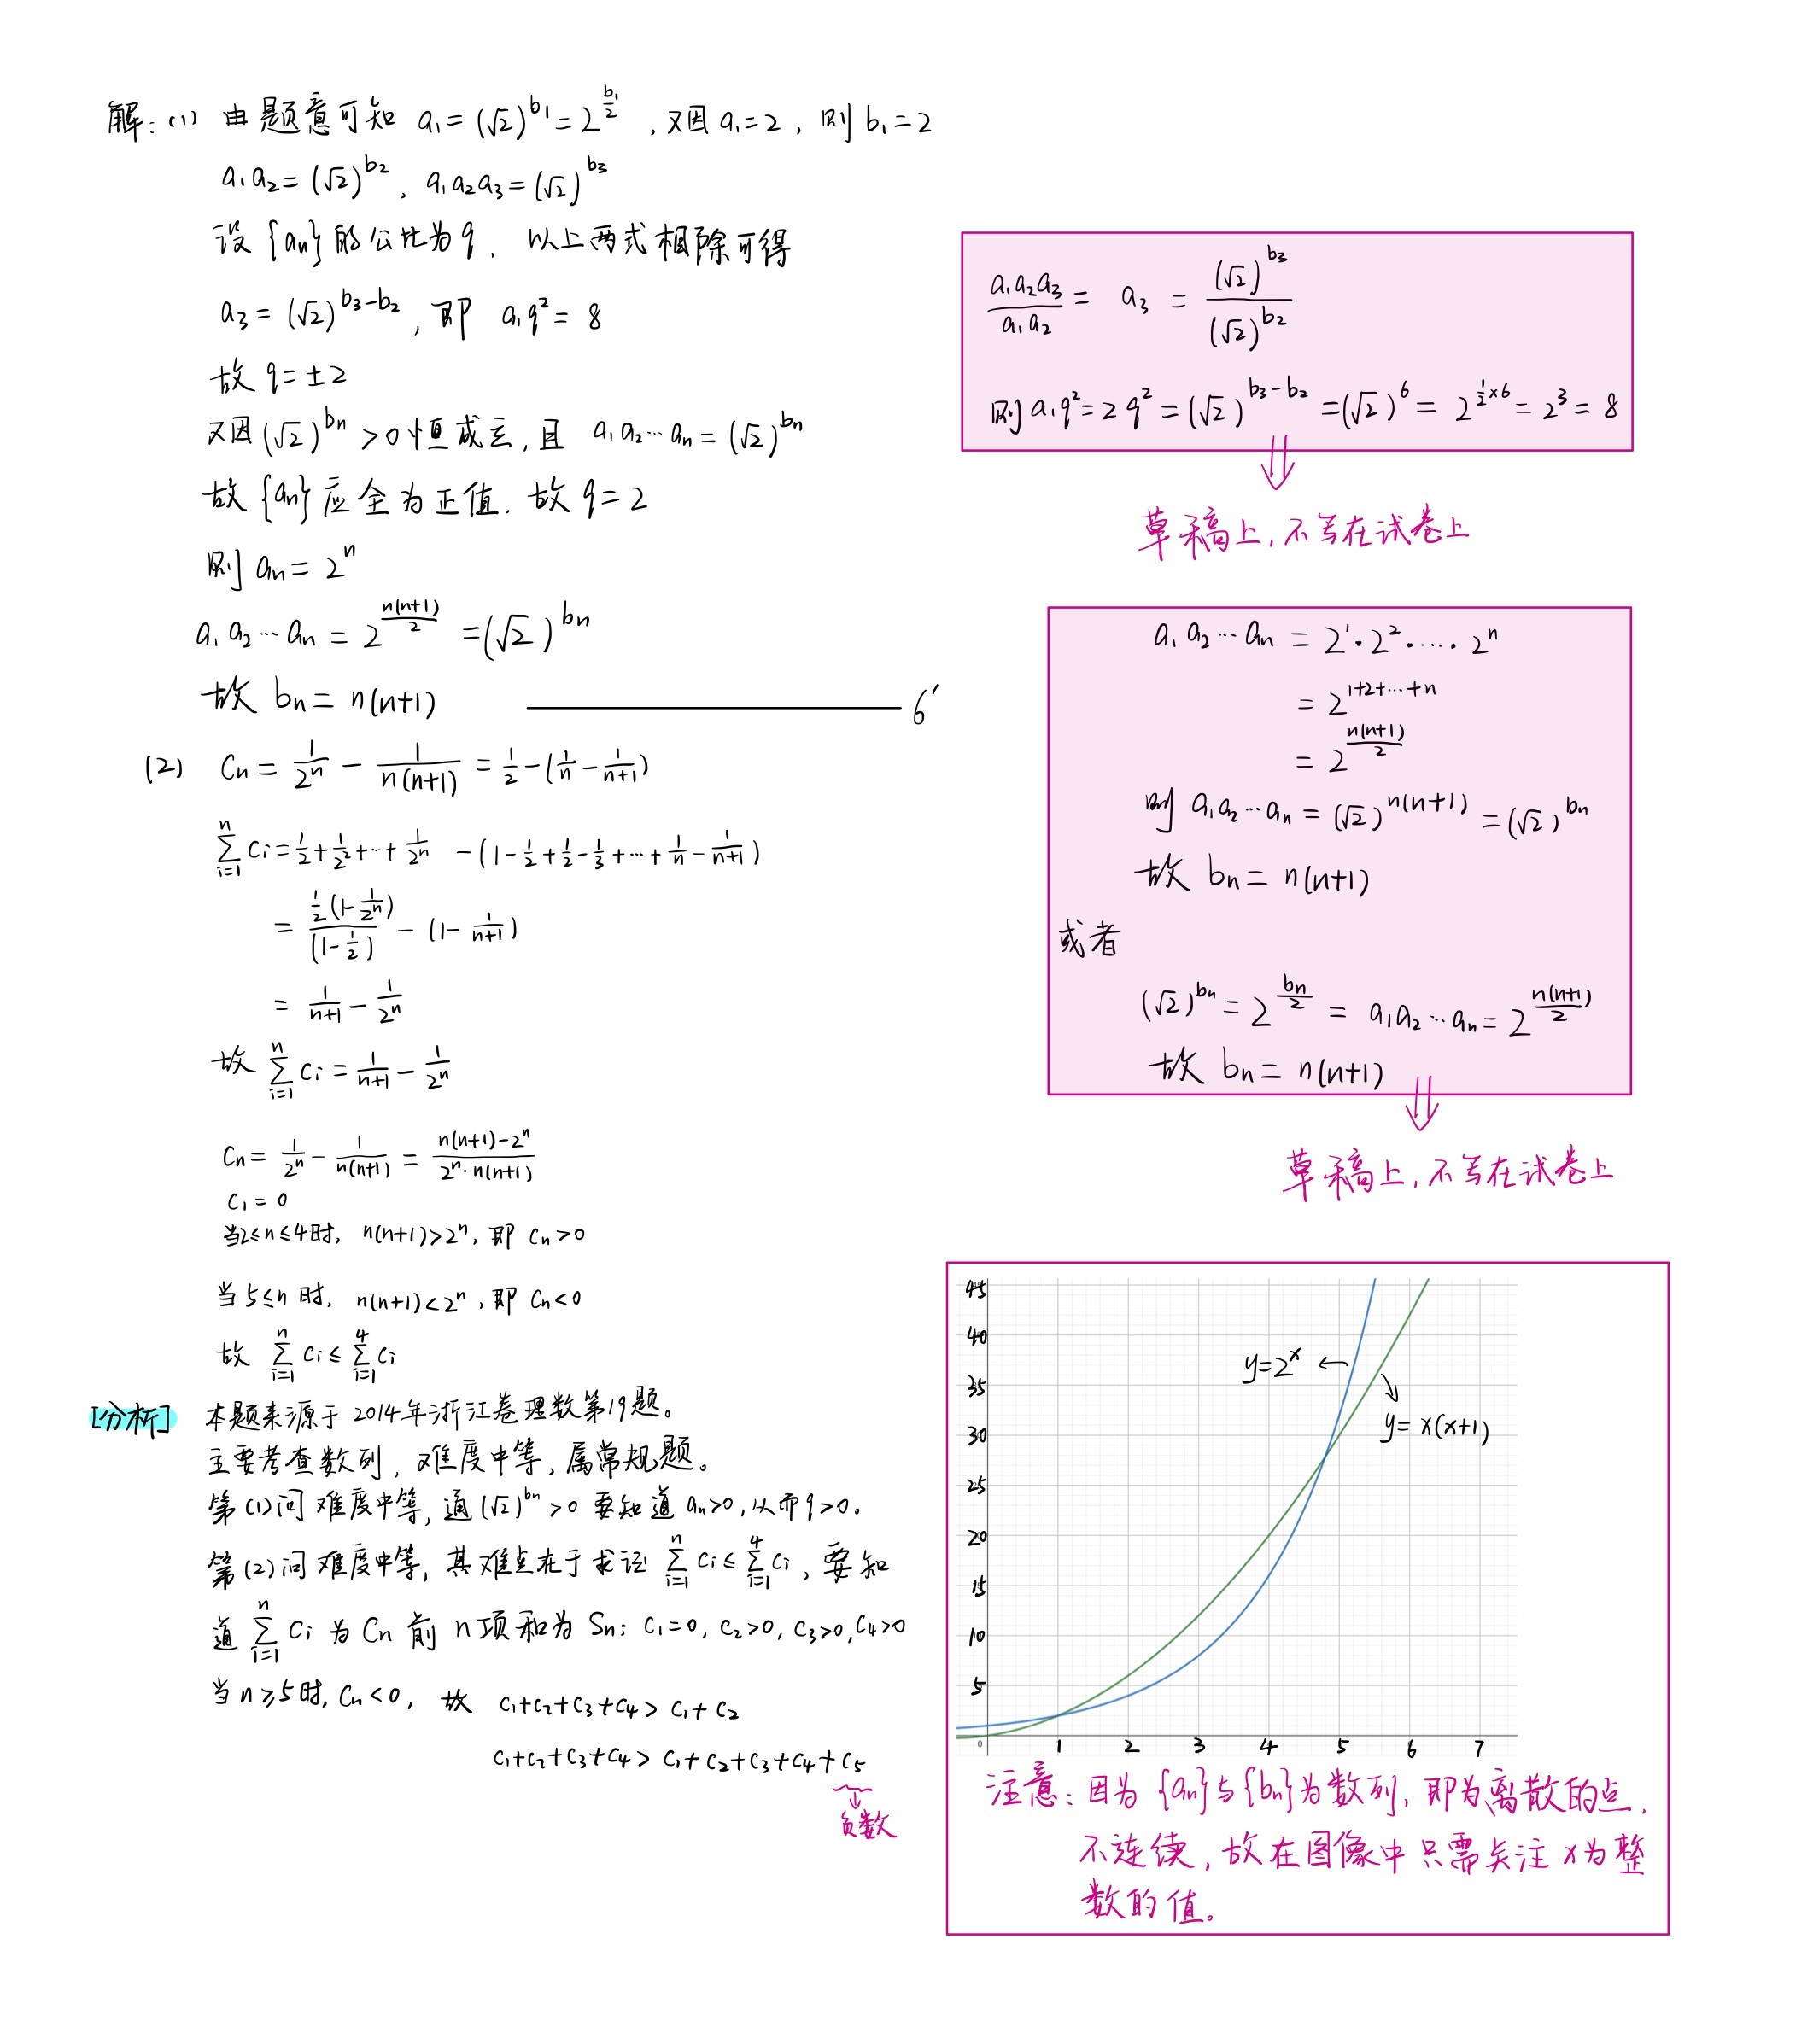 解：(1) 由题意可知 a₁=(√2)^{b₁}=2^{b₁/2}，又因a₁=2，则b₁=2
a₁a₂=(√2)^{b₂}，a₁a₂a₃=(√2)^{b₃}
设{aₙ}的公比为q，以上两式相除可得
a₃=(√2)^{b₃-b₂}，即 a₁q²=8
故q=±2
又因(√2)^{bₙ}>0恒成立，且 a₁a₂…aₙ=(√2)^{bₙ}
故{aₙ}应全为正值，故q=2
则aₙ=2ⁿ
a₁a₂…aₙ=2^{n(n+1)/2}=(√2)^{bₙ}
故 bₙ=n(n+1) ——— 6′
(2) Cₙ=1/2ⁿ-1/(n(n+1))=1/2-(1/n-1/(n+1))
∑_{i=1}^{n}Cᵢ=1/2+1/2²+…+1/2ⁿ -(1-1/2+1/2-1/3+…+1/n-1/(n+1))
=(1/2(1-1/2ⁿ))/(1-1/2)-(1-1/(n+1))
=1/(n+1)-1/2ⁿ
故 ∑_{i=1}^{n}Cᵢ=1/(n+1)-1/2ⁿ
Cₙ=1/2ⁿ-1/(n(n+1))=(n(n+1)-2ⁿ)/(2ⁿ·n(n+1))
C₁=0
当2≤n≤4时，n(n+1)>2ⁿ，即 Cₙ>0
当5≤n时，n(n+1)<2ⁿ，即 Cₙ<0
故 ∑_{i=1}^{n}Cᵢ≤∑_{i=1}^{4}Cᵢ
[分析] 本题来源于2014年浙江卷理数第19题。
主要考查数列，难度中等，属常规题。
第(1)问难度中等，通(√2)^{bₙ}>0要知道aₙ>0，从而q>0。
第(2)问难度中等，其难点在于求证 ∑_{i=1}^{n}Cᵢ≤∑_{i=1}^{4}Cᵢ，要知
道∑_{i=1}^{n}Cᵢ为Cₙ前n项和为Sₙ；C₁=0，C₂>0，C₃>0，C₄>0
当n≥5时，Cₙ<0，故 C₁+C₂+C₃+C₄>C₁+C₂
C₁+C₂+C₃+C₄>C₁+C₂+C₃+C₄+C₅
负数
a₁a₂a₃/(a₁a₂)= a₃ =(√2)^{b₃}/(√2)^{b₂}
则a₁q²=2q²=(√2)^{b₃-b₂}=(√2)⁶=2^{1/2×6}=2³=8
草稿上，不写在试卷上
a₁a₂…aₙ=2¹·2²·…·2ⁿ
=2^{1+2+…+n}
=2^{n(n+1)/2}
则 a₁a₂…aₙ=(√2)^{n(n+1)}=(√2)^{bₙ}
故 bₙ=n(n+1)
或者
(√2)^{bₙ}=2^{bₙ/2}=a₁a₂…aₙ=2^{n(n+1)/2}
故 bₙ=n(n+1)
草稿上，不写在试卷上
45
40
y=2ˣ ←
35
y=x(x+1)
30
25
20
15
10
5
0 1 2 3 4 5 6 7
注意：因为{aₙ}与{bₙ}为数列，即为离散的点，
不连续，故在图像中只需关注x为整
数的值。